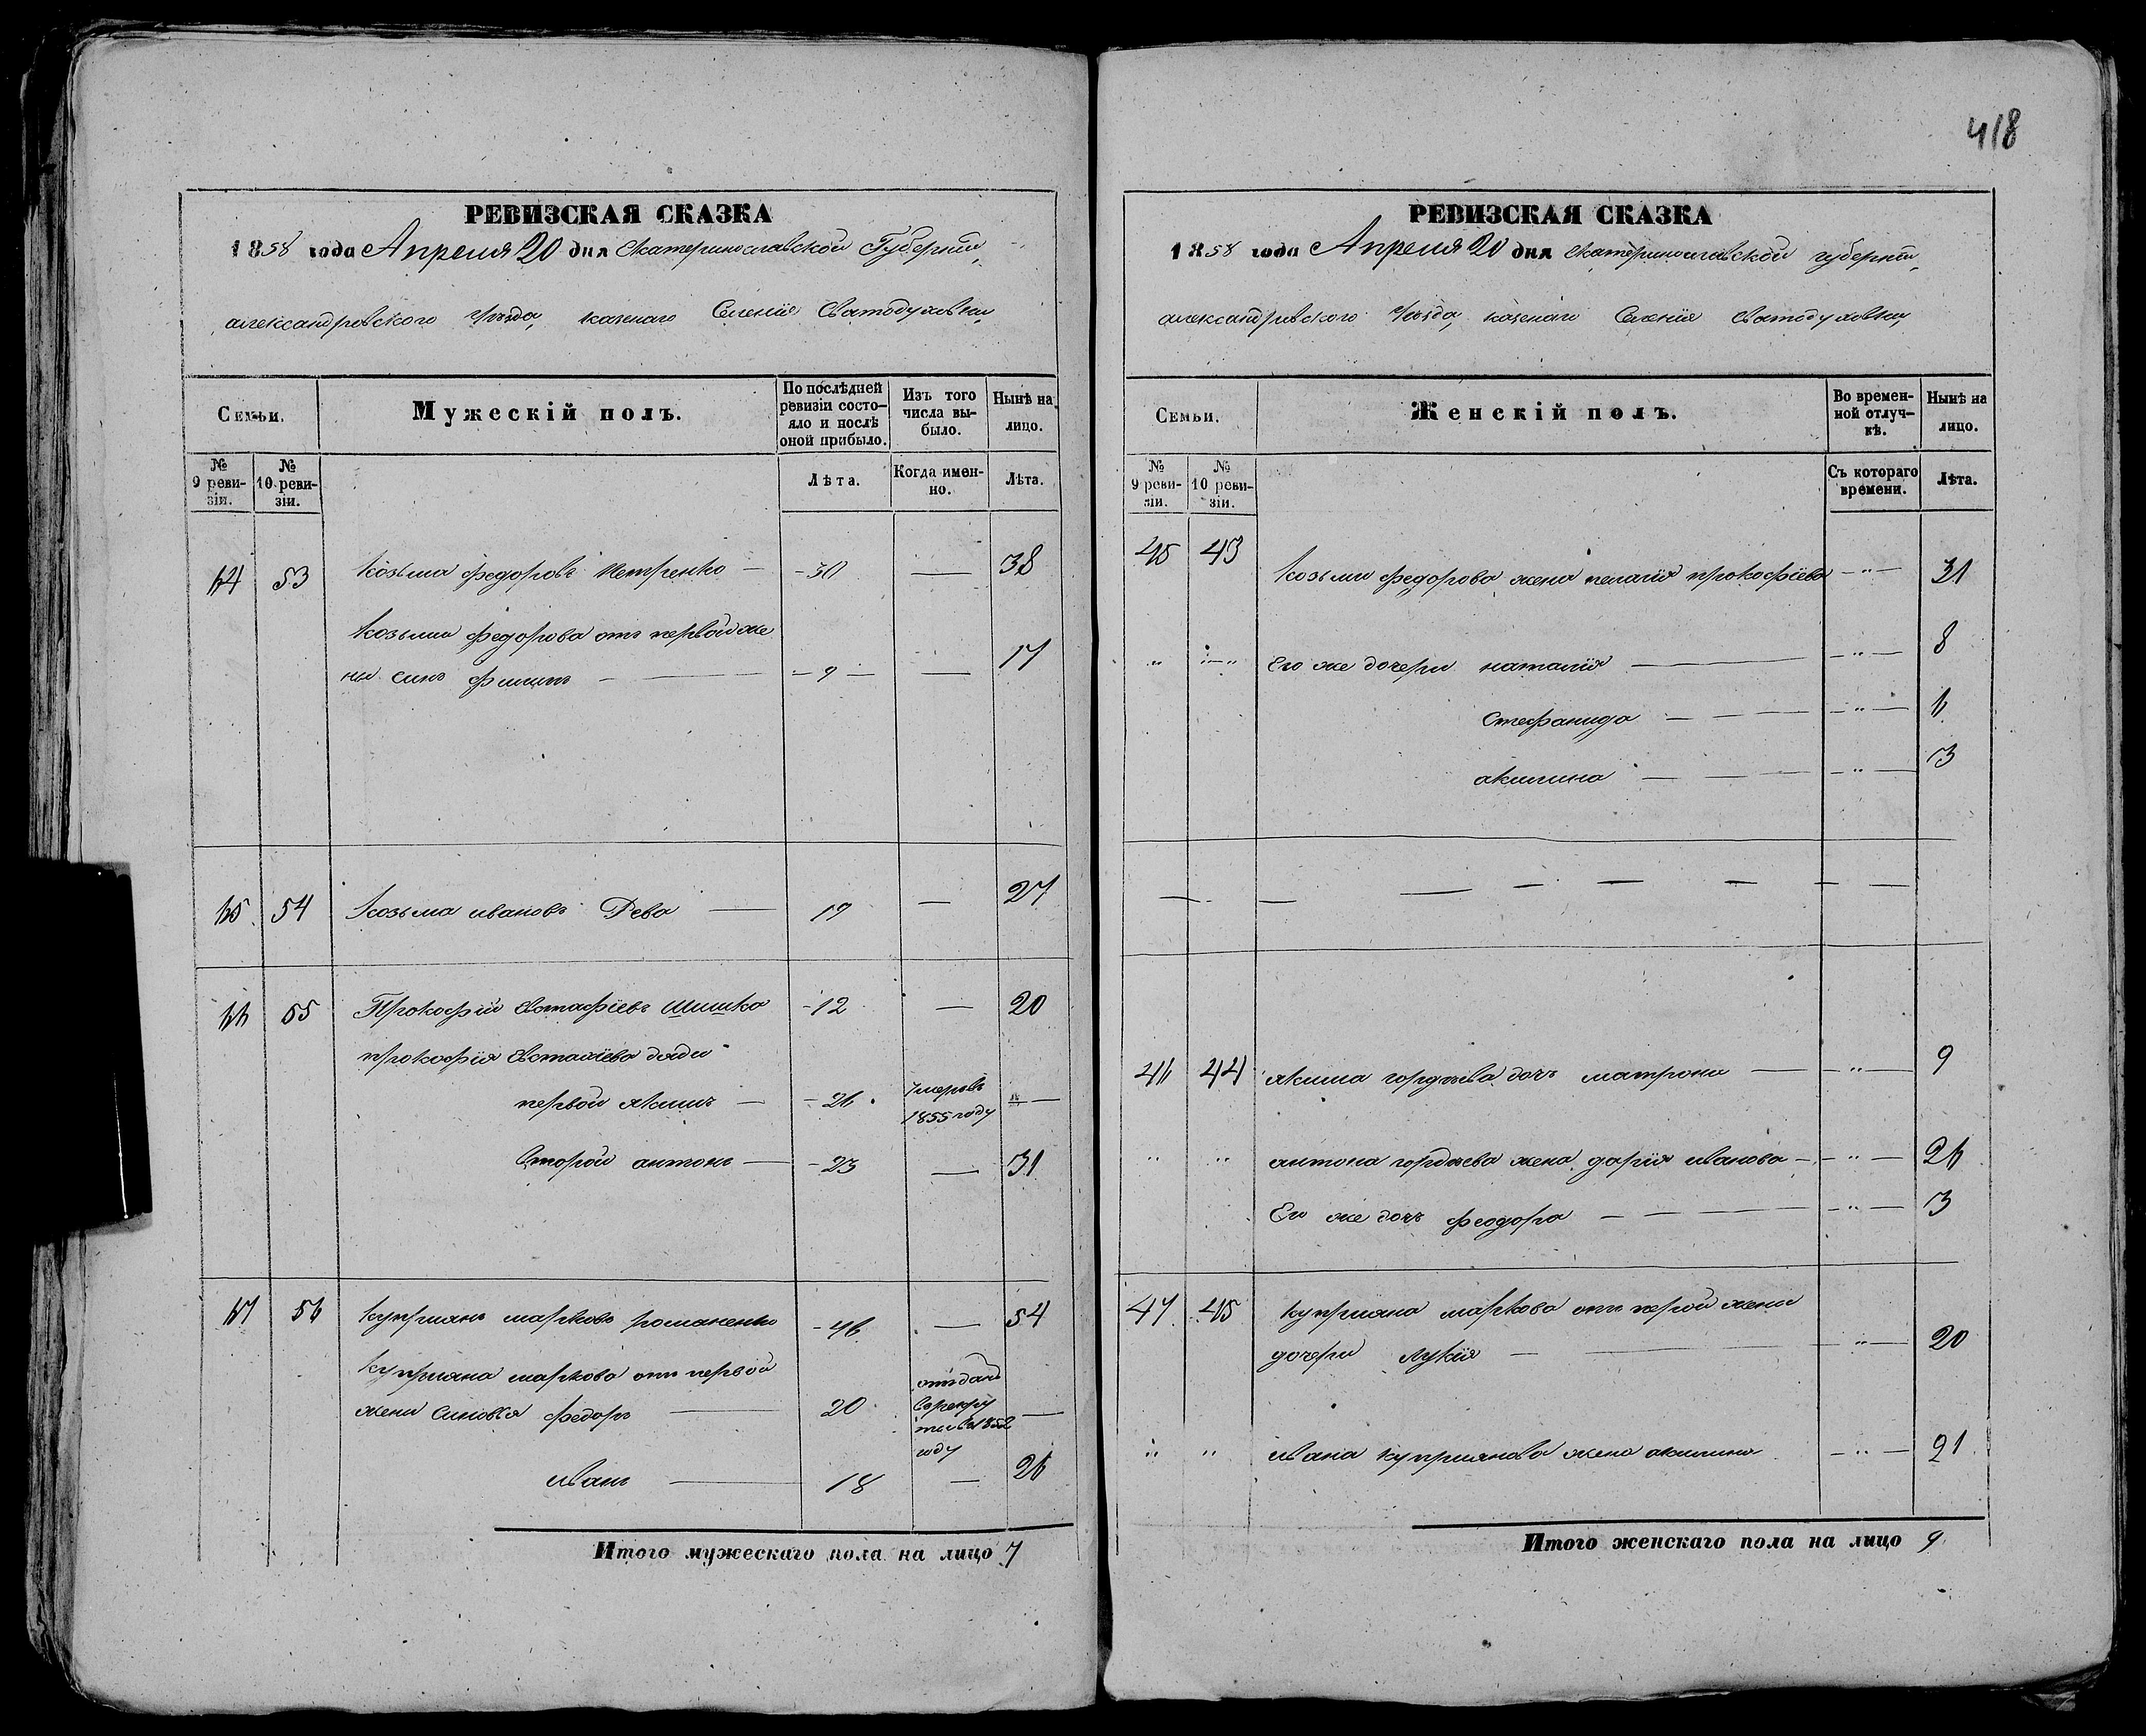 418
РЕВИЗСКАЯ СКАЗКА
1858 года Апреля 20 дня Екатеринославской Губернии,
александровского уѣзда, казенаго Селенія Святодуховки,
Семьи.
Мужескій полъ.
По послѣдней ревизіи состояло и послѣ оной прибыло.
Изъ того числа выбыло.
Нынѣ на лицо.
№ 9 ревизіи.
№ 10 ревизіи.
Лѣта.
Когда именно.
Лѣта.
64 53 Козьма федоровъ Петренко — 30 — 38
Козьми федорова отъ первой же
ны синъ филипъ — 9 — 17
65 54 Козьма ивановъ Рева — 19 — 27
66 55 Прокофій Евстафіевъ Шишка — 12 — 20
прокофія Евстафіева дяди
первой якимъ — 26 умеръ въ 1855 году —
Второй антонъ — 23 — 31
67 56 куприянъ марковъ романенко — 46 — 54
Куприяна маркова отъ первой
жени Синовья федоръ — 20 отъдань в рекру ти в 1852 году —
иванъ — 18 — 26
Итого мужескаго пола на лицо 7
РЕВИЗСКАЯ СКАЗКА
1858 года Апреля 20 дня Екатеринославской губернии,
александровского уѣзда, казенаго Селенія Святодуховки,
Семьи.
Женскій полъ.
Во временной отлучкѣ.
Нынѣ на лицо.
№ 9 ревизіи.
№ 10 ревизіи.
Съ котораго времени.
Лѣта.
45 43 Козьми федорова жена пелагія прокофіева — " — 31
" — " Его же дочери наталія — " — 8
Стефанида — " — 6
акилина — " — 3
46 44 якима гордѣева дочъ матрона — " — 9
" " антона гордѣева жена дарія иванова — " — 26
Его же дочъ феодора — " — 3
47 45 куприяна маркова отъ перой жени
дочери лукія — " — 20
" " ивана куприянова жена акилина — " — 21
Итого женскаго пола на лицо 9